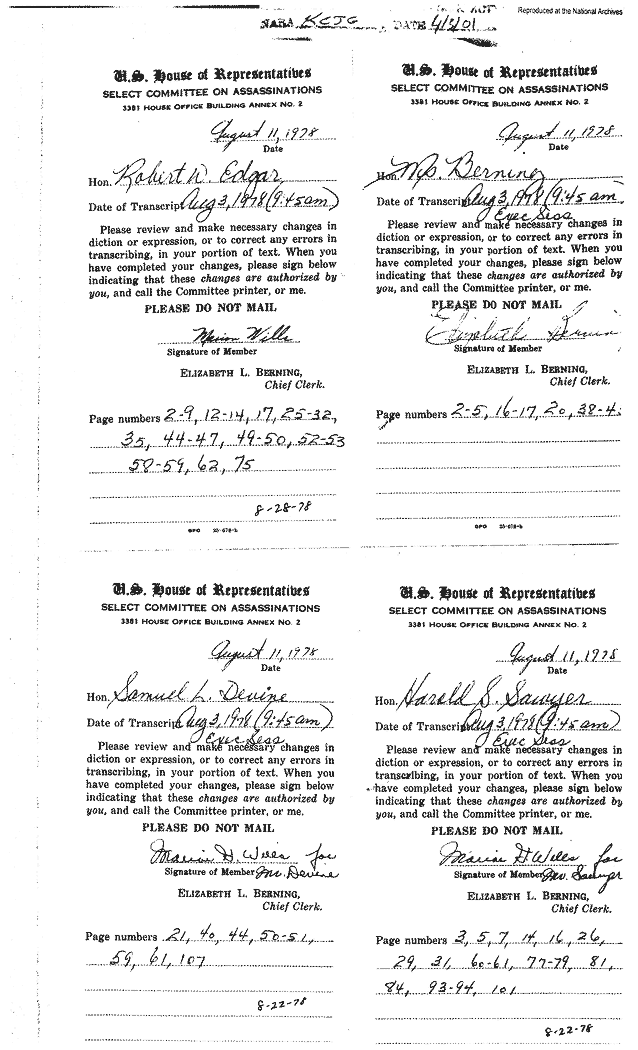 Reproduced at the National Archives
ACT
NARA KCJG DATE 4/3/01
U.S. House of Representatives
SELECT COMMITTEE ON ASSASSINATIONS
3381 HOUSE OFFICE BUILDING ANNEX NO. 2
August 11, 1978
Date
Hon. Robert W. Edgar
Date of Transcript Aug 3, 1978 (9:45am)
Please review and make necessary changes in
diction or expression, or to correct any errors in
transcribing, in your portion of text. When you
have completed your changes, please sign below
indicating that these changes are authorized by
you, and call the Committee printer, or me.
PLEASE DO NOT MAIL
Marion Wills
Signature of Member
ELIZABETH L. BERNING,
Chief Clerk.
Page numbers 2-9, 12-14, 17, 25-32,
35, 44-47, 49-50, 52-53
58-59, 62, 75
8-28-78
GPO 25-678-b
U.S. House of Representatives
SELECT COMMITTEE ON ASSASSINATIONS
3381 HOUSE OFFICE BUILDING ANNEX NO. 2
August 11, 1978
Date
Hon. Ms. Berning
Date of Transcript Aug 3, 1978 (9:45 am)
Exec Sess
Please review and make necessary changes in
diction or expression, or to correct any errors in
transcribing, in your portion of text. When you
have completed your changes, please sign below
indicating that these changes are authorized by
you, and call the Committee printer, or me.
PLEASE DO NOT MAIL
Elizabeth Bernin
Signature of Member
ELIZABETH L. BERNING,
Chief Clerk.
Page numbers 2-5, 16-17, 20, 38-4
GPO 25-678-b
U.S. House of Representatives
SELECT COMMITTEE ON ASSASSINATIONS
3381 HOUSE OFFICE BUILDING ANNEX NO. 2
August 11, 1978
Date
Hon. Samuel L. Devine
Date of Transcript Aug 3, 1978 (9:45am)
Exec Sess
Please review and make necessary changes in
diction or expression, or to correct any errors in
transcribing, in your portion of text. When you
have completed your changes, please sign below
indicating that these changes are authorized by
you, and call the Committee printer, or me.
PLEASE DO NOT MAIL
Marion H. Wills for
Signature of Member Mr. Devine
ELIZABETH L. BERNING,
Chief Clerk.
Page numbers 21, 40, 44, 50-51,
59, 61, 107
8-22-78
U.S. House of Representatives
SELECT COMMITTEE ON ASSASSINATIONS
3381 HOUSE OFFICE BUILDING ANNEX NO. 2
August 11, 1978
Date
Hon. Harold S. Sawyer
Date of Transcript Aug 3, 1978 (9:45am)
Exec Sess
Please review and make necessary changes in
diction or expression, or to correct any errors in
transcribing, in your portion of text. When you
have completed your changes, please sign below
indicating that these changes are authorized by
you, and call the Committee printer, or me.
PLEASE DO NOT MAIL
Marion H. Wills for
Signature of Member Mr. Sawyer
ELIZABETH L. BERNING,
Chief Clerk.
Page numbers 3, 5, 7, 14, 16, 26,
29, 31, 60-61, 77-79, 81,
84, 93-94, 101
8-22-78